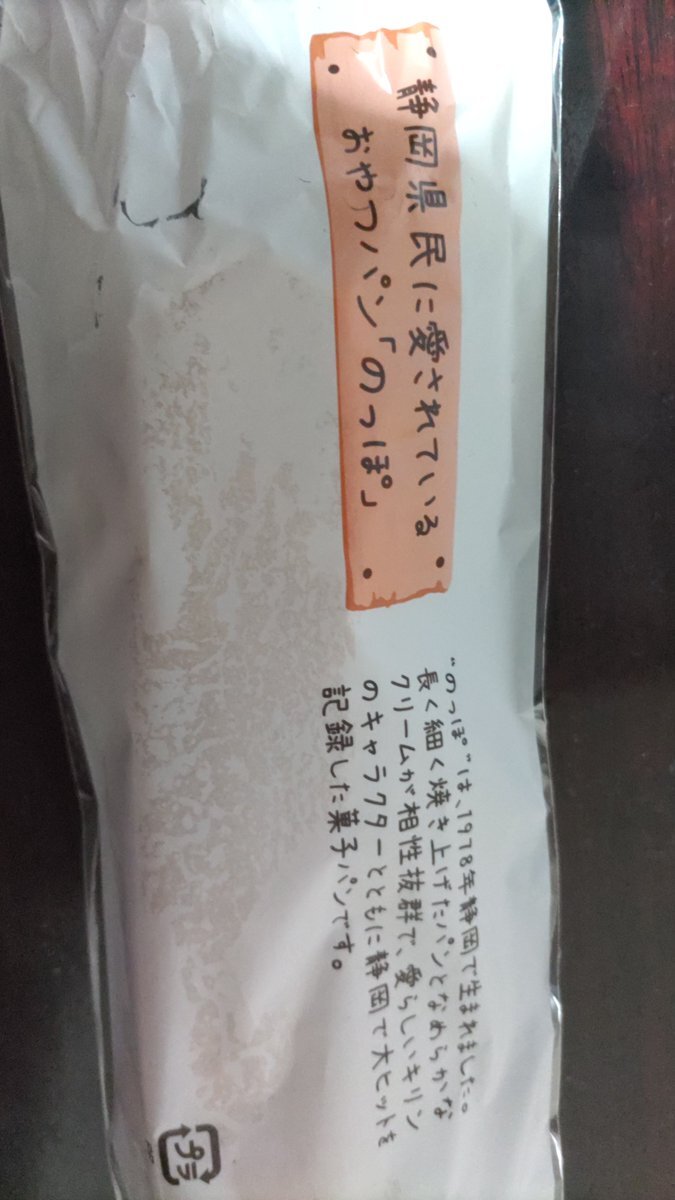 静岡県民に愛されている
おやつパン「のっぽ」
“のっぽ”は、1978年静岡で生まれました。
長く細く焼き上げたパンとなめらかな
クリームが相性抜群で、愛らしいキリン
のキャラクターとともに静岡で大ヒットを
記録した菓子パンです。
プラ